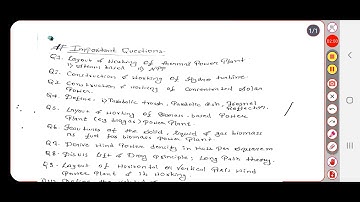 1/1
Important Questions
Q1. Layout & Working of Thermal Power Plant
i) steam based ii) NPP
Q2. Construction & Working of Hydro turbine.
Q3. Construction & working of Concentrated solar Power.
Q4. Define: i) Parabolic trough, Parabolic dish, Fresnel Reflector.
Q5. Layout & Working of Biomass-based Power Plant (eg biogas) Power Plant.
Q6. of the solid, liquid & gas biomass as fuel for biomass power Plant.
Q7. Derive Wind Power density in Watt Per Square m
Q8. Discuss Lift & Drag Principle; Long Path theory.
Q9. Layout of Horizontal & Vertical Axis Wind Power Plant & its Working